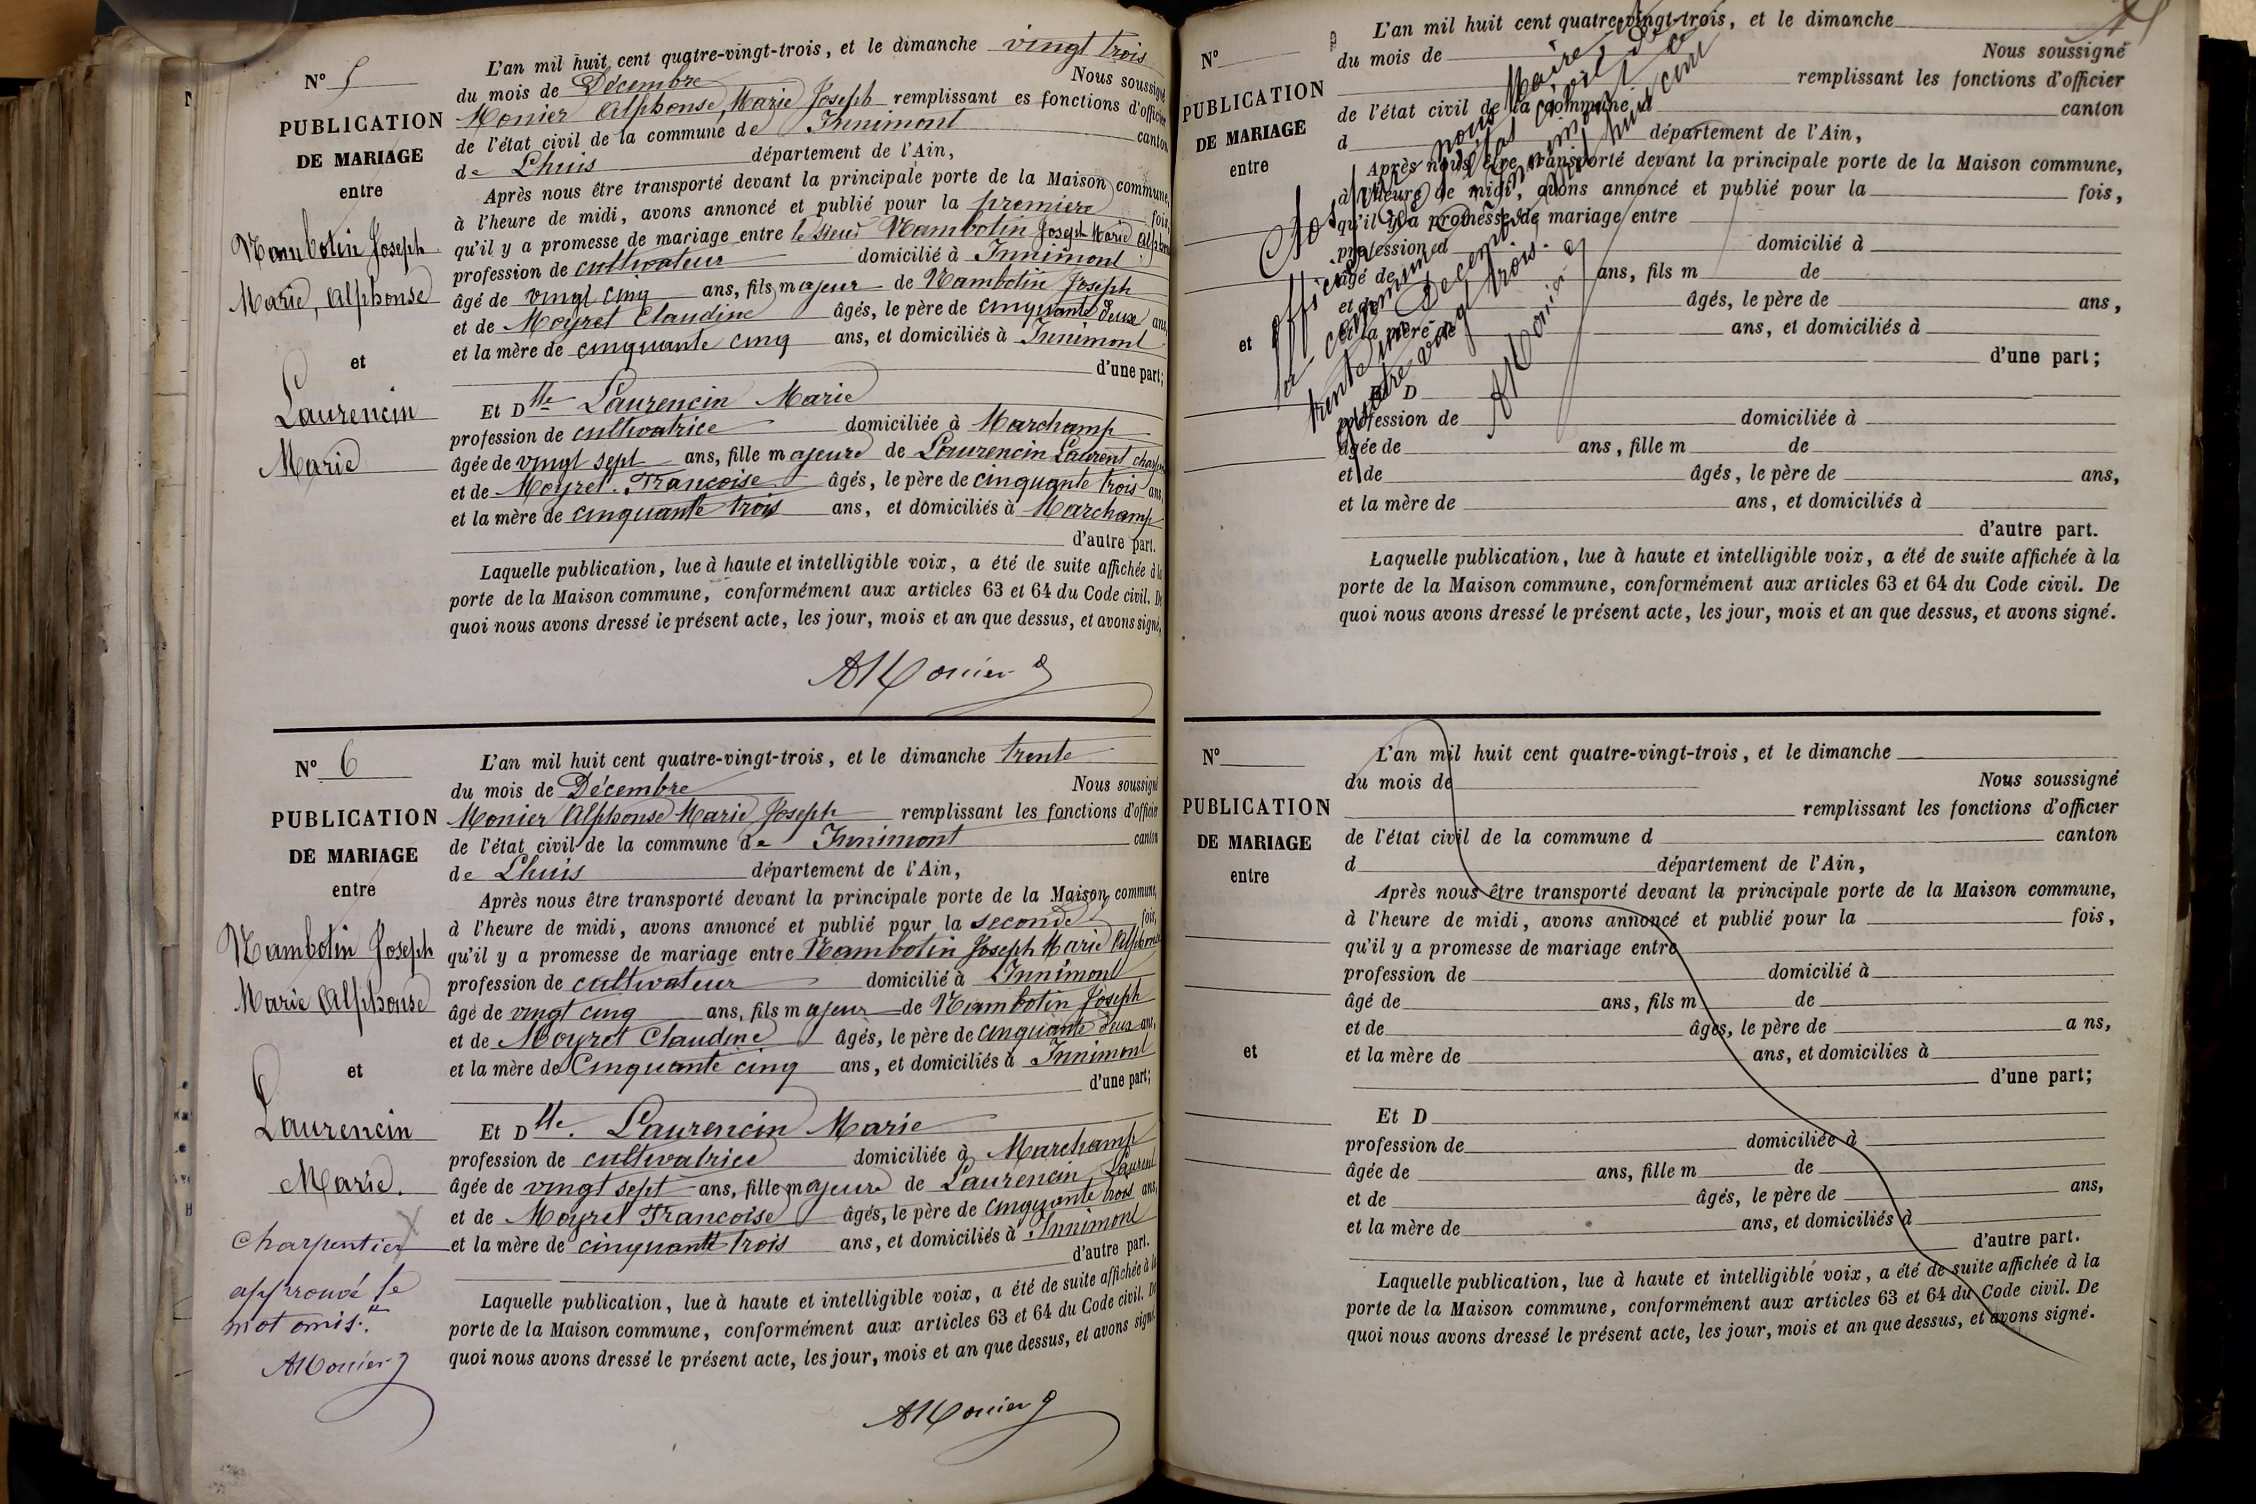 N° 5
PUBLICATION
DE MARIAGE
entre
Nambotin Joseph
Marie, Alphonse
et
Laurencin
Marie
L'an mil huit cent quatre-vingt-trois, et le dimanche vingt trois
du mois de Décembre Nous soussigné
Monier Alphonse, Marie Joseph remplissant es fonctions d'officier
de l'état civil de la commune de Innimont canton
de Lhuis département de l'Ain,
Après nous être transporté devant la principale porte de la Maison commune,
à l'heure de midi, avons annoncé et publié pour la première fois,
qu'il y a promesse de mariage entre le sieur Nambotin Joseph Marie Alphonse
profession de cultivateur domicilié à Innimont
âgé de vingt cinq ans, fils majeur de Nambotin Joseph
et de Moyret Claudine âgés, le père de cinquante deux ans,
et la mère de cinquante cinq ans, et domiciliés à Innimont
d'une part;
Et Dlle Laurencin Marie
profession de cultivatrice domiciliée à Marchamp
âgée de vingt sept ans, fille majeure de Laurencin Laurent
et de Moyret Françoise âgés, le père de cinquante trois ans,
et la mère de cinquante trois ans, et domiciliés à Marchamp
d'autre part.
Laquelle publication, lue à haute et intelligible voix, a été de suite affichée à la
porte de la Maison commune, conformément aux articles 63 et 64 du Code civil. De
quoi nous avons dressé le présent acte, les jour, mois et an que dessus, et avons signé.
AMonier
N° 6
PUBLICATION
DE MARIAGE
entre
Nambotin Joseph
Marie Alphonse
et
Laurencin
Marie.
charpentier
approuvé le
mot omis.
AMonier
L'an mil huit cent quatre-vingt-trois, et le dimanche trente
du mois de Décembre Nous soussigné
Monier Alphonse Marie Joseph remplissant les fonctions d'officier
de l'état civil de la commune de Innimont canton
de Lhuis département de l'Ain,
Après nous être transporté devant la principale porte de la Maison commune,
à l'heure de midi, avons annoncé et publié pour la seconde fois,
qu'il y a promesse de mariage entre Nambotin Joseph Marie Alphonse
profession de cultivateur domicilié à Innimont
âgé de vingt cinq ans, fils majeur de Nambotin Joseph
et de Moyret Claudine âgés, le père de cinquante deux ans,
et la mère de Cinquante cinq ans, et domiciliés à Innimont
d'une part;
Et Dlle. Laurencin Marie
profession de cultivatrice domiciliée à Marchamp
âgée de vingt sept ans, fille majeure de Laurencin Laurent
et de Moyret Françoise âgés, le père de cinquante trois ans,
et la mère de cinquante trois ans, et domiciliés à Innimont
d'autre part.
Laquelle publication, lue à haute et intelligible voix, a été de suite affichée à la
porte de la Maison commune, conformément aux articles 63 et 64 du Code civil. De
quoi nous avons dressé le présent acte, les jour, mois et an que dessus, et avons signé.
AMonier
N°
PUBLICATION
DE MARIAGE
entre
et
L'an mil huit cent quatre-vingt-trois, et le dimanche
du mois de Nous soussigné
remplissant les fonctions d'officier
de l'état civil de la commune d canton
d département de l'Ain,
Après nous être transporté devant la principale porte de la Maison commune,
à l'heure de midi, avons annoncé et publié pour la fois,
qu'il y a promesse de mariage entre
profession d domicilié à
âgé de ans, fils m de
et de âgés, le père de ans,
et la mère de ans, et domiciliés à
d'une part;
Et D
profession de domiciliée à
âgée de ans, fille m de
et de âgés, le père de ans,
et la mère de ans, et domiciliés à
d'autre part.
Laquelle publication, lue à haute et intelligible voix, a été de suite affichée à la
porte de la Maison commune, conformément aux articles 63 et 64 du Code civil. De
quoi nous avons dressé le présent acte, les jour, mois et an que dessus, et avons signé.
Clos par nous Maire,
officier de l'état civil de
la commune d'Innimont le
trente un Décembre mil huit cent
quatre vingt trois.
AMonier
N°
PUBLICATION
DE MARIAGE
entre
et
L'an mil huit cent quatre-vingt-trois, et le dimanche
du mois de Nous soussigné
remplissant les fonctions d'officier
de l'état civil de la commune d canton
d département de l'Ain,
Après nous être transporté devant la principale porte de la Maison commune,
à l'heure de midi, avons annoncé et publié pour la fois,
qu'il y a promesse de mariage entre
profession de domicilié à
âgé de ans, fils m de
et de âgés, le père de ans,
et la mère de ans, et domicilies à
d'une part;
Et D
profession de domiciliée à
âgée de ans, fille m de
et de âgés, le père de ans,
et la mère de ans, et domiciliés à
d'autre part.
Laquelle publication, lue à haute et intelligible voix, a été de suite affichée à la
porte de la Maison commune, conformément aux articles 63 et 64 du Code civil. De
quoi nous avons dressé le présent acte, les jour, mois et an que dessus, et avons signé.